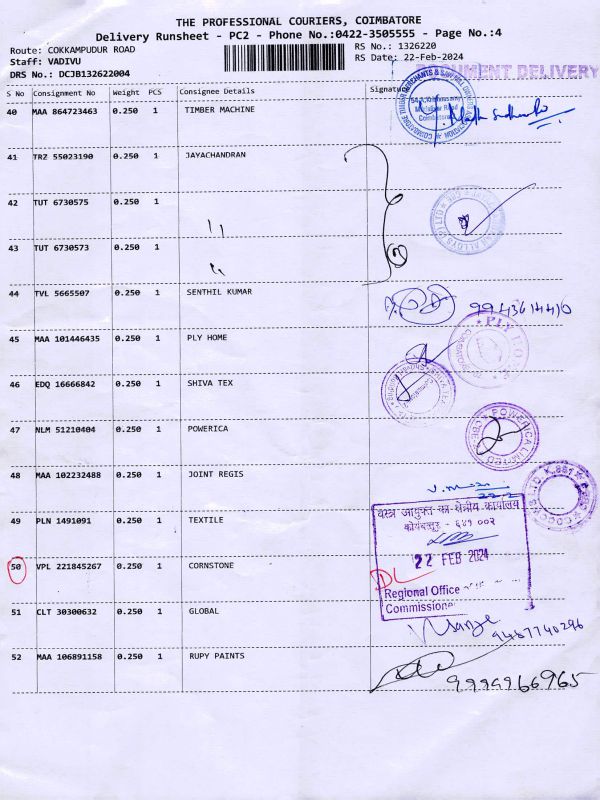 THE PROFESSIONAL COURIERS, COIMBATORE
Delivery Runsheet - PC2 - Phone No.:0422-3505555 - Page No.:4
Route: COKKAMPUDUR ROAD RS No.: 1326220
Staff: VADIVU RS Date: 22-Feb-2024
DRS No.: DCJB132622004
DOCUMENT DELIVERY
S No Consignment No Weight PCS Consignee Details Signature
40 MAA 864723463 0.250 1 TIMBER MACHINE
41 TRZ 55023190 0.250 1 JAYACHANDRAN
42 TUT 6730575 0.250 1 〃
43 TUT 6730573 0.250 1 〃
44 TVL 5665507 0.250 1 SENTHIL KUMAR
9943614410
45 MAA 101446435 0.250 1 PLY HOME
46 EDQ 16666842 0.250 1 SHIVA TEX
47 NLM 51210404 0.250 1 POWERICA
POWERICA LIMITED
CBE
48 MAA 102232488 0.250 1 JOINT REGIS
49 PLN 1491091 0.250 1 TEXTILE
वस्त्र आयुक्त का क्षेत्रीय कार्यालय
कोयंबत्तूर - ६४१ ००२
22 FEB 2024
DL
Regional Office
Commissione
50 VPL 221845267 0.250 1 CORNSTONE
51 CLT 30300632 0.250 1 GLOBAL
9487740296
52 MAA 106891158 0.250 1 RUPY PAINTS
9999966965